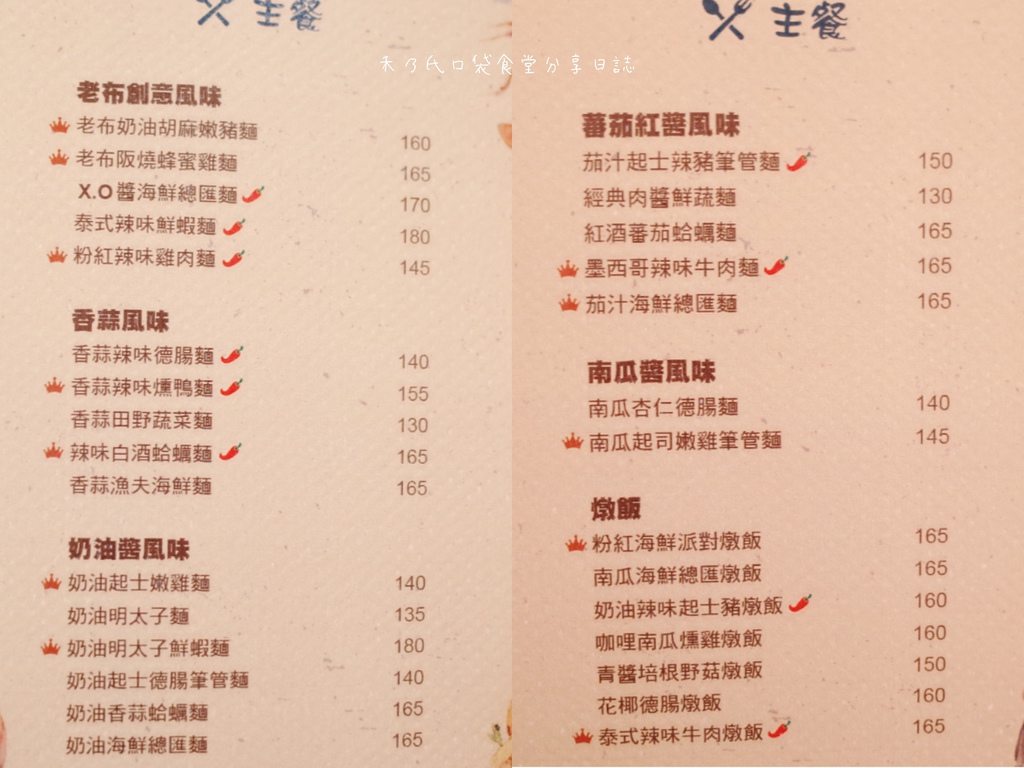 主餐
禾乃氏口袋食堂分享日誌
老布創意風味
老布奶油胡麻嫩豬麵 160
老布阪燒蜂蜜雞麵 165
X.O醬海鮮總匯麵 170
泰式辣味鮮蝦麵 180
粉紅辣味雞肉麵 145
香蒜風味
香蒜辣味德腸麵 140
香蒜辣味燻鴨麵 155
香蒜田野蔬菜麵 130
辣味白酒蛤蠣麵 165
香蒜漁夫海鮮麵 165
奶油醬風味
奶油起士嫩雞麵 140
奶油明太子麵 135
奶油明太子鮮蝦麵 180
奶油起士德腸筆管麵 140
奶油香蒜蛤蠣麵 165
奶油海鮮總匯麵 165
主餐
蕃茄紅醬風味
茄汁起士辣豬筆管麵 150
經典肉醬鮮蔬麵 130
紅酒蕃茄蛤蠣麵 165
墨西哥辣味牛肉麵 165
茄汁海鮮總匯麵 165
南瓜醬風味
南瓜杏仁德腸麵 140
南瓜起司嫩雞筆管麵 145
燉飯
粉紅海鮮派對燉飯 165
南瓜海鮮總匯燉飯 165
奶油辣味起士豬燉飯 160
咖哩南瓜燻雞燉飯 160
青醬培根野菇燉飯 150
花椰德腸燉飯 160
泰式辣味牛肉燉飯 165